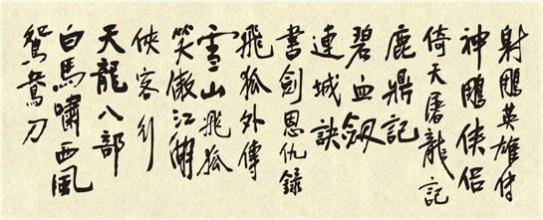 射鵰英雄传
神鵰侠侶
倚天屠龍記
鹿鼎記
碧血劔
連城訣
書劍恩仇錄
飛狐外傳
雪山飛狐
笑傲江湖
俠客行
天龍八部
白馬嘯西風
鴛鴦刀